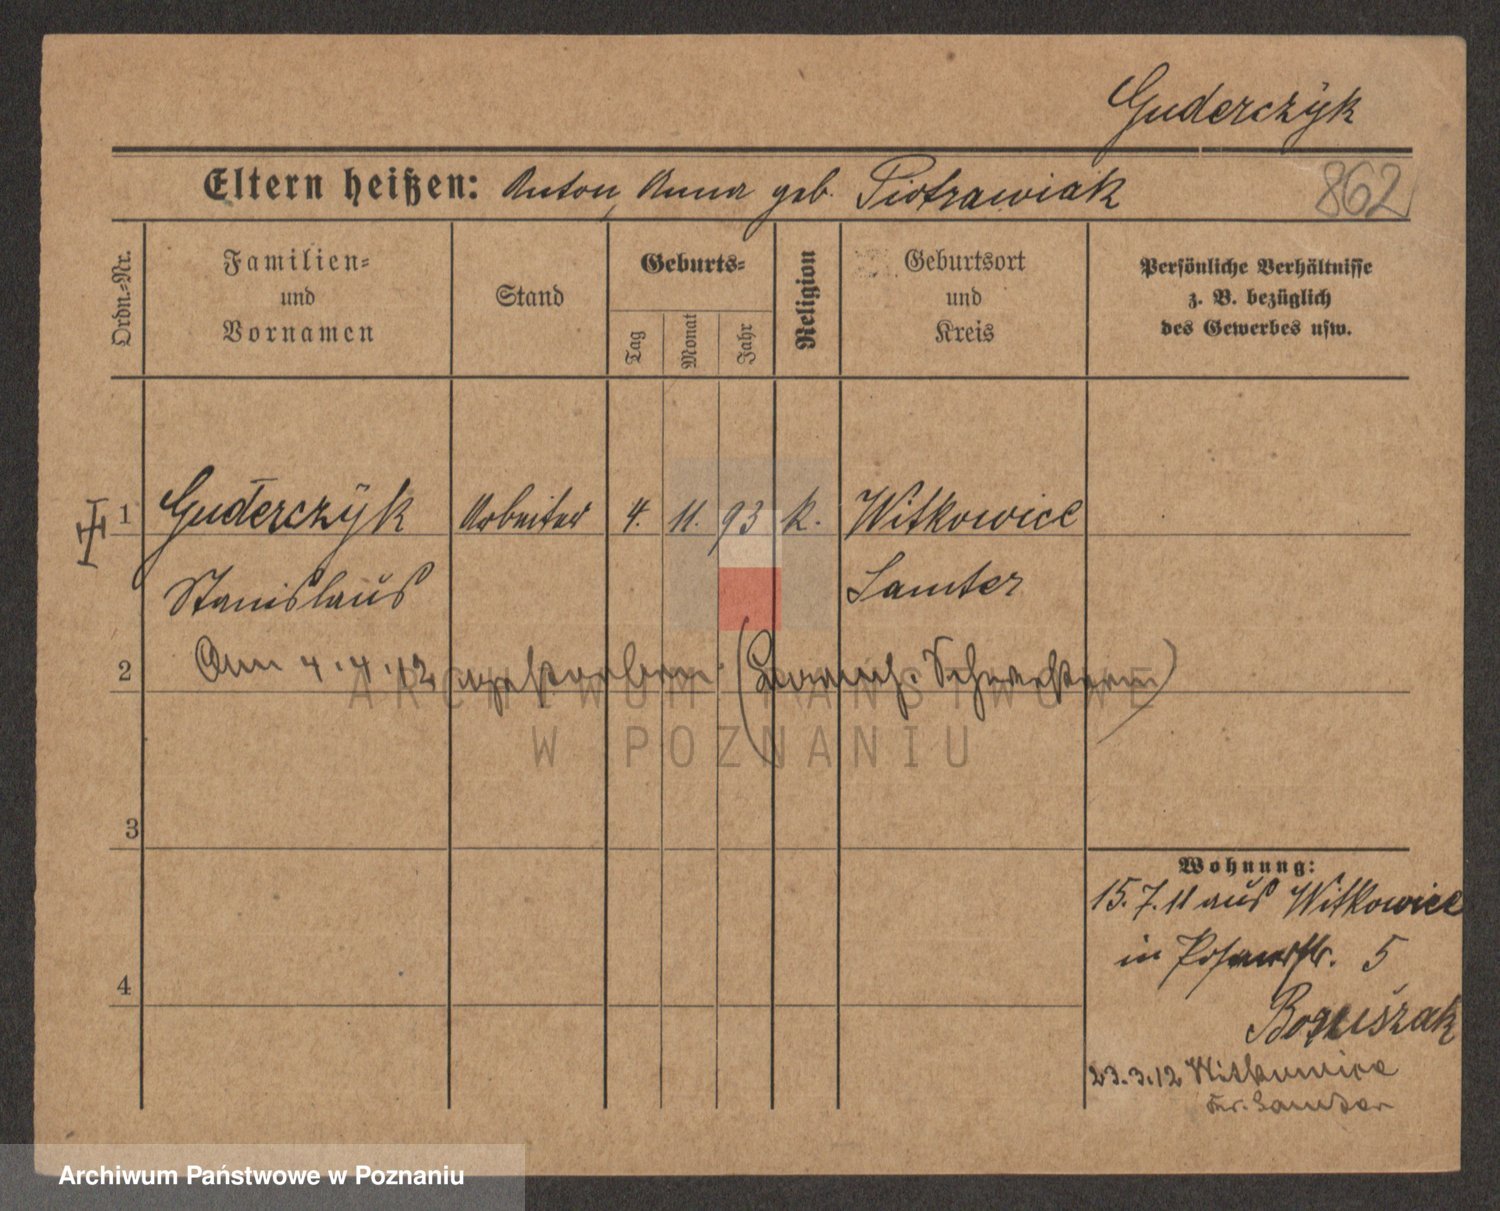 Guderczÿk
Eltern heißen: Anton, Anna geb. Piotrawiak
862
Ordn.-Nr.
Familien-
und
Vornamen
Stand
Geburts-
Tag
Monat
Jahr
Religion
Geburtsort
und
Kreis
Persönliche Verhältnisse
z. B. bezüglich
des Gewerbes usw.
1 Guderczÿk Arbeiter 4. 11. 93 k. Witkowice
Stanislaus Samter
2 Am 4.4.12 gestorben. (Barmh. Schwestern)
3
4
Wohnung:
15.7.11 aus Witkowice
in Posenerstr. 5
Boguszak
23.3.12 Witkowice
Kr. Samter
ARCHIWUM PAŃSTWOWE
W POZNANIU
Archiwum Państwowe w Poznaniu